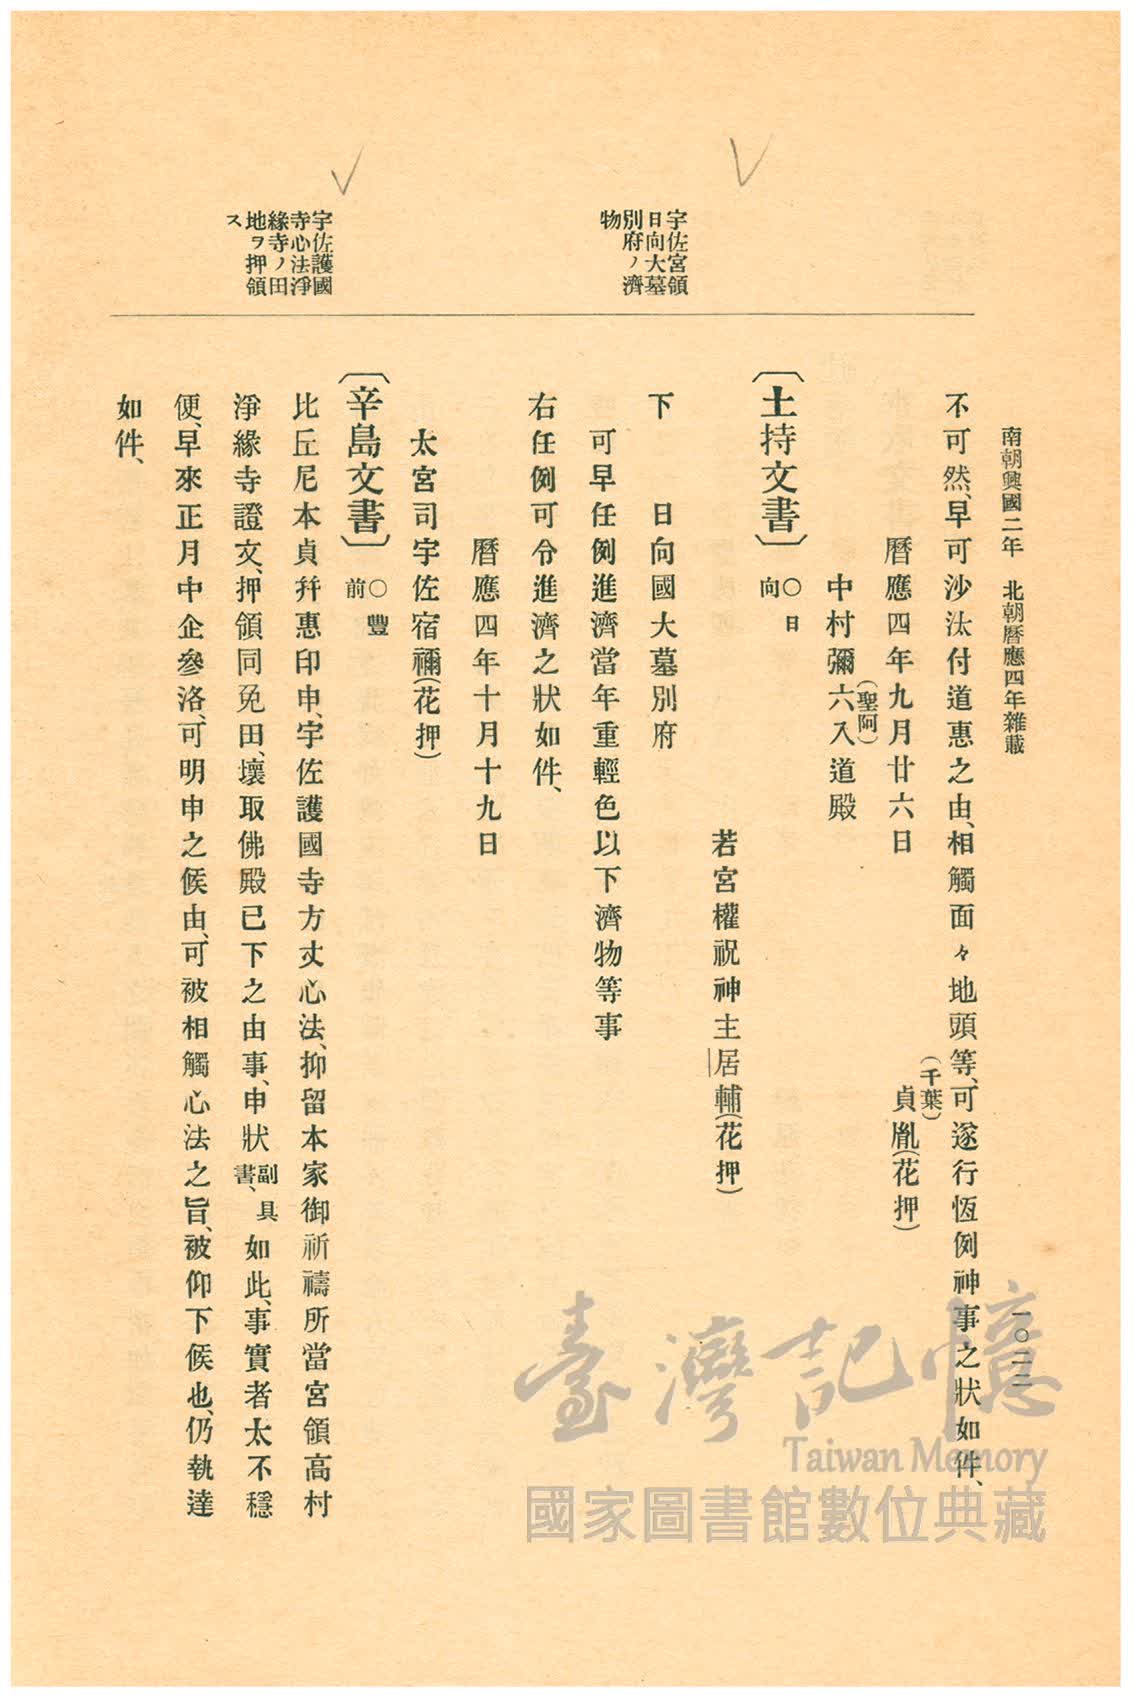 南朝興國二年 北朝曆應四年雜載
一〇二二
不可然、早可沙汰付道惠之由、相觸面々地頭等、可遂行恆例神事之狀如件、
曆應四年九月廿六日
(千葉)
貞胤(花押)
(聖阿)
中村彌六入道殿
〔土持文書〕〇日向
若宮權祝神主居輔(花押)
下 日向國大墓別府
可早任例進濟當年重輕色以下濟物等事
右任例可令進濟之狀如件、
曆應四年十月十九日
太宮司宇佐宿禰(花押)
〔辛島文書〕〇豐前
比丘尼本貞幷惠印申、宇佐護國寺方丈心法、抑留本家御祈禱所當宮領高村
淨緣寺證文、押領同免田、壞取佛殿已下之由事、申狀副具書、如此、事實者太不穩
便、早來正月中企參洛、可明申之候由、可被相觸心法之旨、被仰下候也、仍執達
如件、
宇佐宮領
日向大墓
別府ノ濟
物
宇佐護國
寺心法淨
緣寺ノ田
地ヲ押領
ス
臺灣記憶
Taiwan Memory
國家圖書館數位典藏